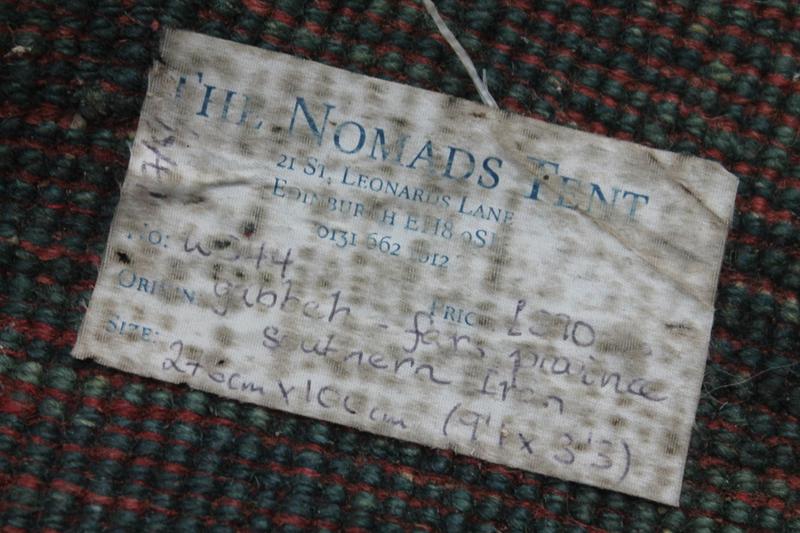 THE NOMADS TENT
21 ST. LEONARDS LANE
EDINBURGH EH8 9SH
0131 662 1612
NO:
ORIGIN: gabbeh - fars province
PRICE
southern Iran
SIZE: (9'1 x 3'3)